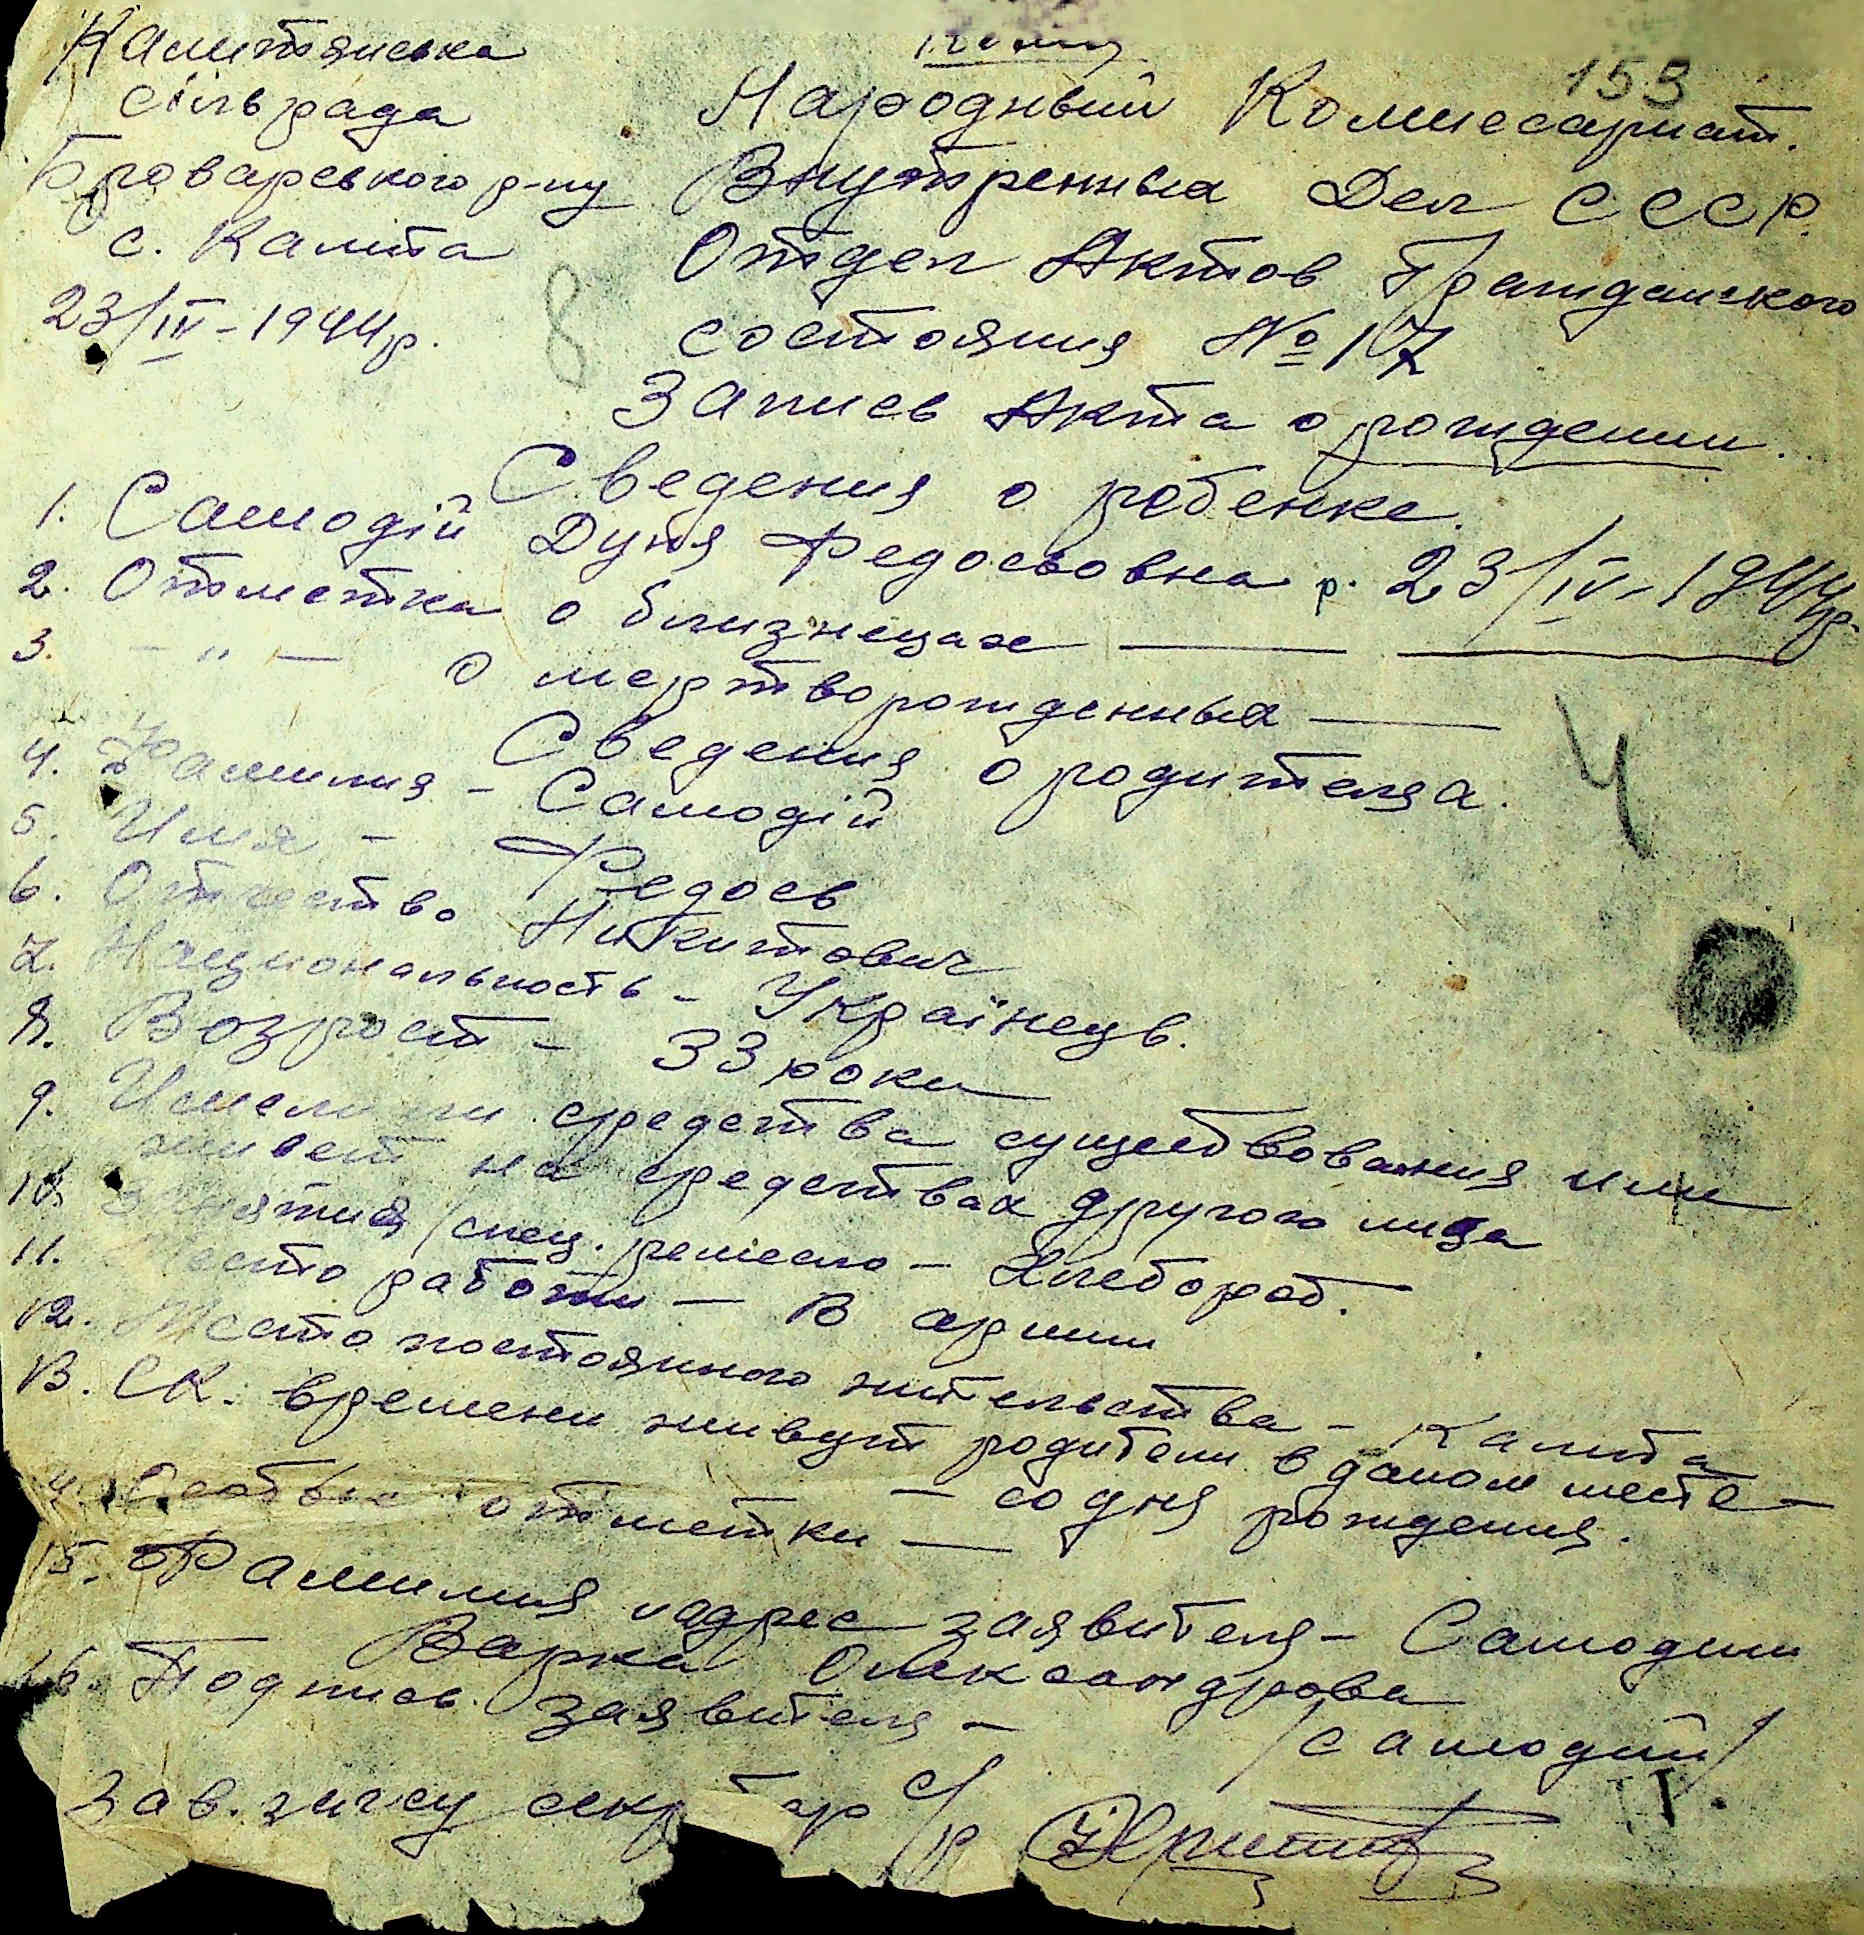 Калитянська
сільрада
Броварського р-ну
с. Калита
23/IV-1944р.
Копия
153
Народный Комиссариат.
Внутренных Дел СССР.
Отдел Актов Гражданского
состояния № 17
8
Запись Акта о рождении.
Сведения о ребенке.
1. Самодій Дуня Федосьовна р. 23/IV-1944р.
2. Отметка о близнецах —
3. — " — о мертворожденных —
Сведения о родителях.
4. Фамилия - Самодій
4
5. Имя - Федось
6. Отчество Никитович
7. Национальность - Українець.
8. Возрост - 33 роки
9. Имел ли средства существования или
живет на средствах другого лица
10. Занятия /спец. ремесло - Хлебороб.
11. Место работы - В армии
12. Место постоянного жительства - Калита
13. Ск. времени живут родители в даном месте -
— со дня рождения.
14. Особые отметки —
15. Фамилия и адрес заявителя - Самодий
Варка Олександрова
16. Подпись заявителя - /Самодий/
Зав. загсу секр тар с/р